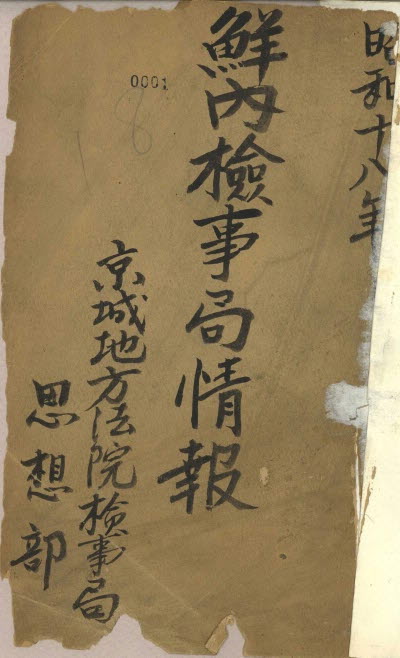 昭和十八年
鮮內檢事局情報
京城地方法院檢事局
思想部
0001